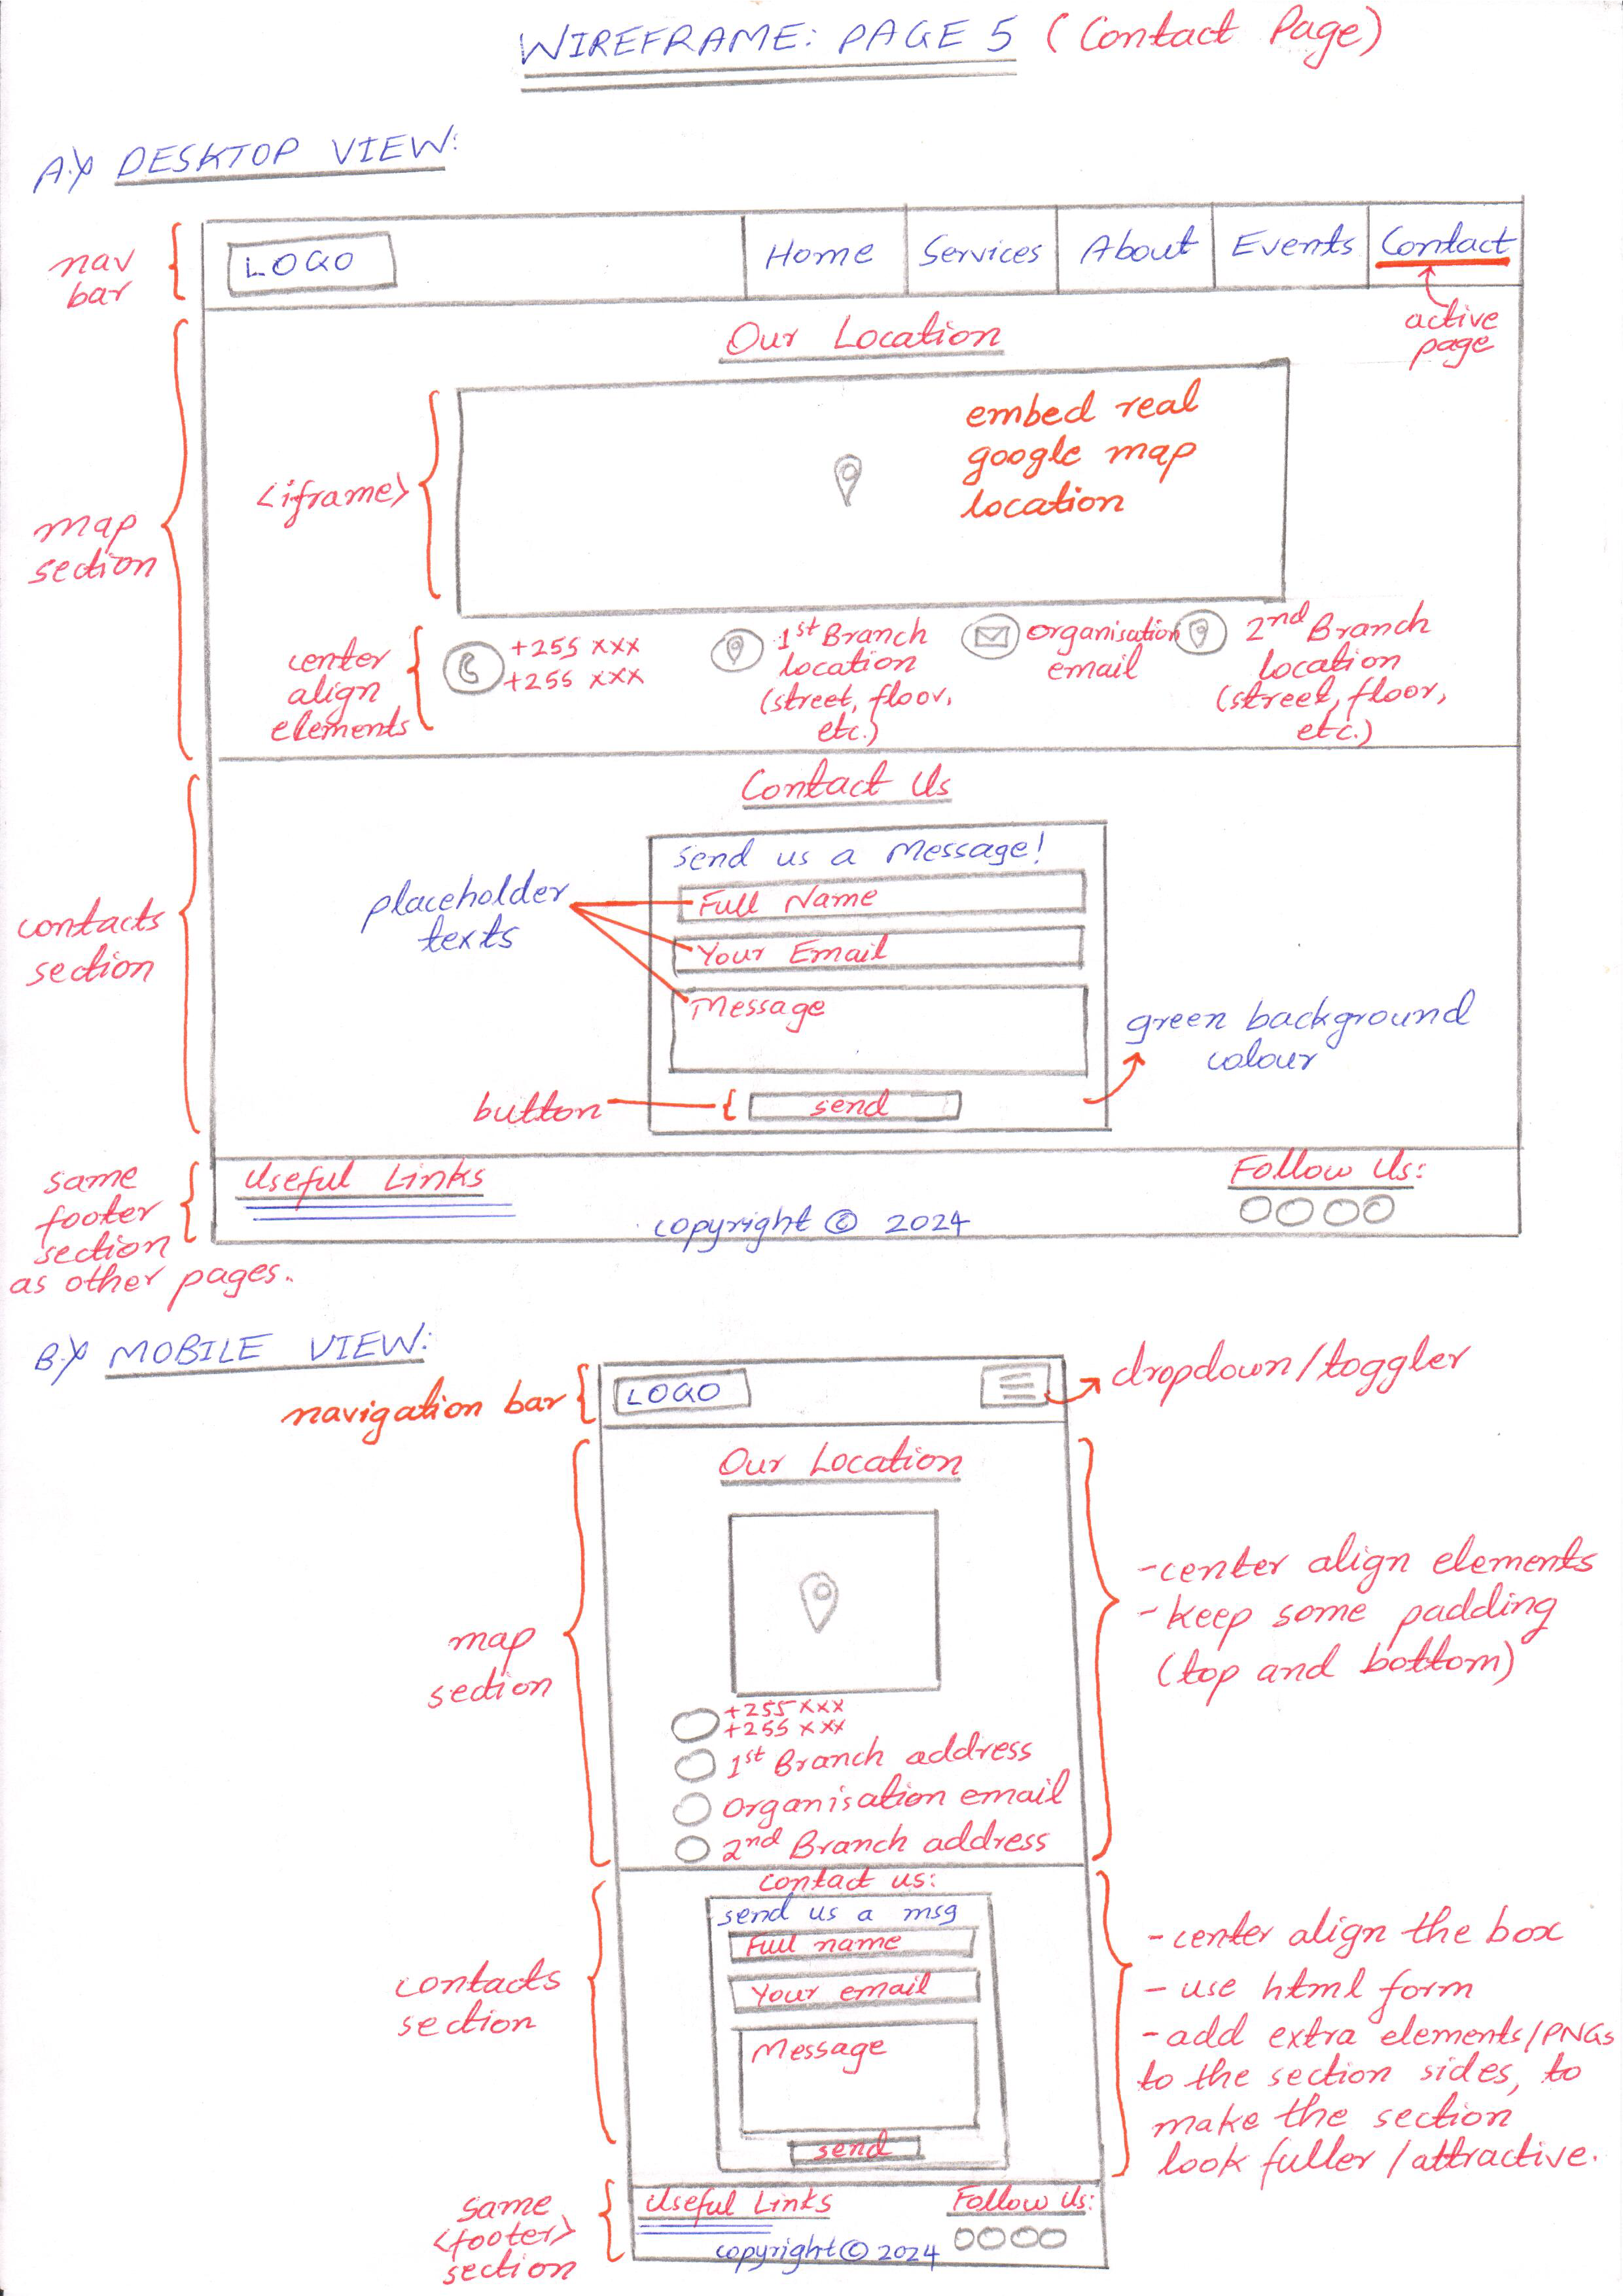 WIREFRAME: PAGE 5 (Contact Page)
A.) DESKTOP VIEW:
nav
bar
LOGO
Home
Services
About
Events
Contact
active
page
Our Location
map
section
<iframe>
embed real
google map
location
center
align
elements
+255 xxx
+255 xxx
1st Branch
location
(street, floor,
etc.)
organisation
email
2nd Branch
location
(street, floor,
etc.)
Contact Us
contacts
section
placeholder
texts
Send us a Message!
Full Name
Your Email
Message
green background
colour
button
send
same
footer
section
as other pages.
Useful Links
copyright © 2024
Follow Us:
B.) MOBILE VIEW:
navigation bar
LOGO
dropdown/toggler
Our Location
map
section
-center align elements
-keep some padding
(top and bottom)
+255 xxx
+255 xxx
1st Branch address
organisation email
2nd Branch address
contact us:
contacts
section
send us a msg
Full name
Your email
Message
send
-center align the box
-use html form
-add extra elements/PNGs
to the section sides, to
make the section
look fuller/attractive.
same
<footer>
section
Useful Links
copyright © 2024
Follow Us: